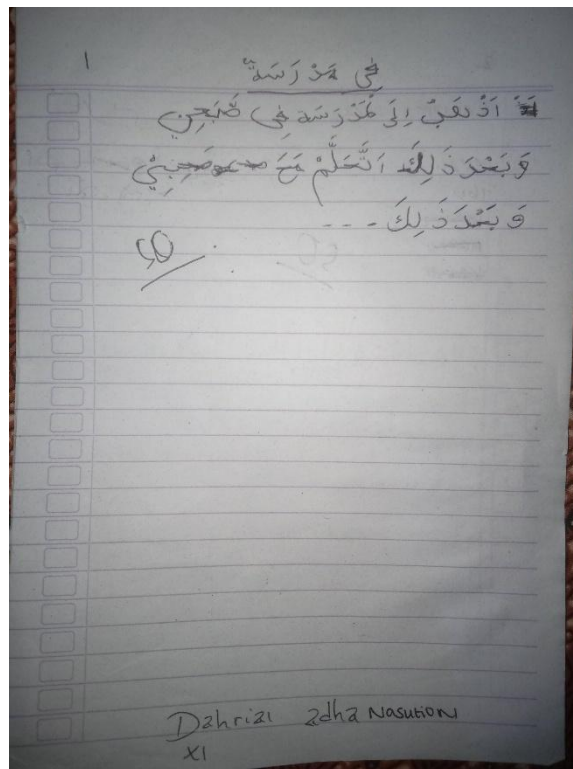 ١
فِي مَدْرَسَة
اَذْهَبُ اِلَى لْمَدْرَسَه فِى صَّبَحِن
وَبَعْدَ ذَلِكَ اَتَّعَلَّمْ مَعَ صَحِبِيْ
وَ بَعْدَ ذَ لِكَ - - -
Dahrizal adha Nasution
XI